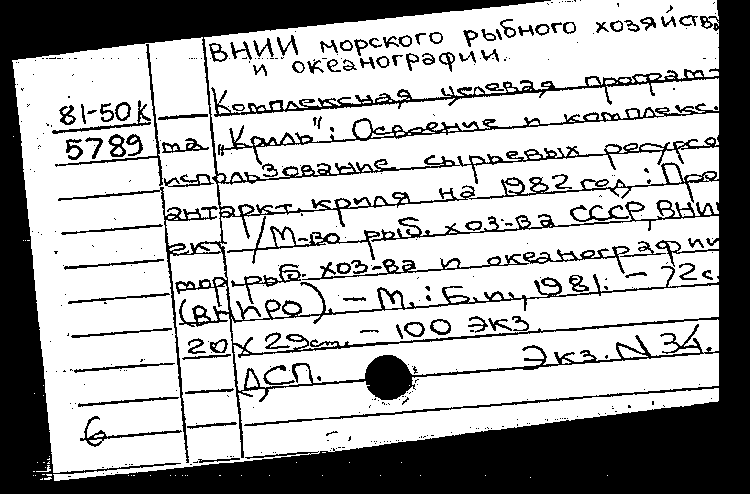 ВНИИ морского рыбного хозяйств
и океанографии.
81-50К
5789
Комплексная целевая програм-
ма „Криль": Освоение и комплекс.
использование сырьевых ресурсо
антаркт. криля на 1982 год : Про
ект / М-во рыб. хоз-ва СССР, ВНИИ
мор. рыб. хоз-ва и океанографии
(ВНИРО). – М. : Б.и., 1981. – 72 с.
20 х 29 см. – 100 экз.
ДСП.
Экз. N 34.
6